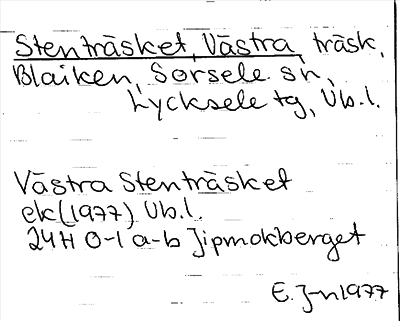 Stenträsket, Västra, träsk,
Blaiken, Sorsele sn,
Lycksele tg, Vb.l.
Västra Stenträsket
ek (1977) Vb.l.
24H 0-1 a-b Jipmokberget
E. J-n 1977